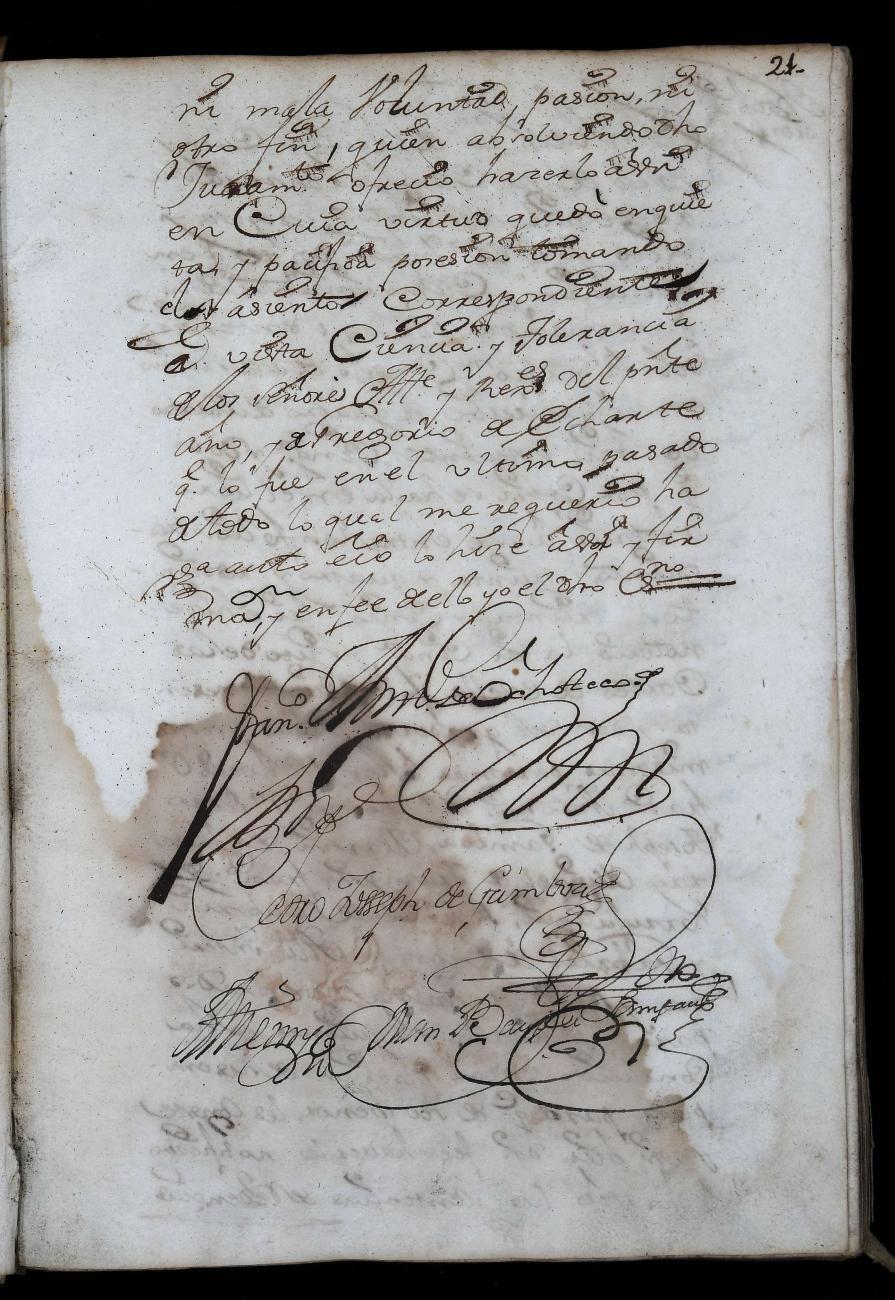 21
ni mala Voluntad, pasion, ni
otro fin, quien absolviendo dho
Juram.to ofrecio hazerlo assi
en Cuia virtud quedò en quie
ta, y pacifica posesion tomando
los asientos Correspondientes
a vista Ciencia y Tolerancia
de los señores Alte y Rex.es del pnte
año, y de Gregorio de Echarte
q.e lo fue en el ultimo pasado
de todo lo qual me requerio ha
ga auto e io lo hize assi y fir
ma, y en fee de ello yo el dho Es.no
Juan. Ant.o de Ochoteco
Pedro Joseph de Gamboa
Ante mi
Juan Bauptta